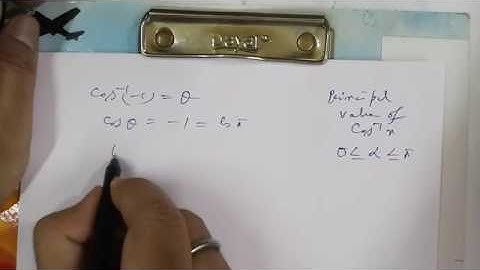 cos⁻¹(-1) = θ
cos θ = -1 = cos π
Principal
value of
cos⁻¹x
0 ≤ α ≤ π